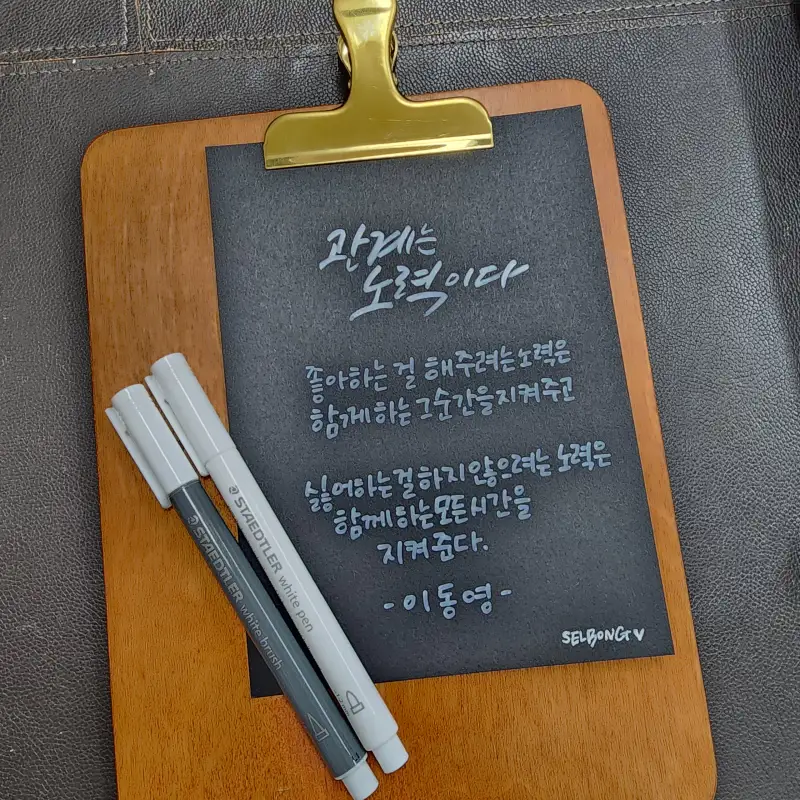 관계는
노력이다
좋아하는 걸 해주려는 노력은
함께 하는 그 순간을 지켜주고
싫어하는 걸 하지 않으려는 노력은
함께 하는 모든 시간을
지켜준다.
- 이동영 -
SELBONG ♥
STAEDTLER white pen
STAEDTLER white brush